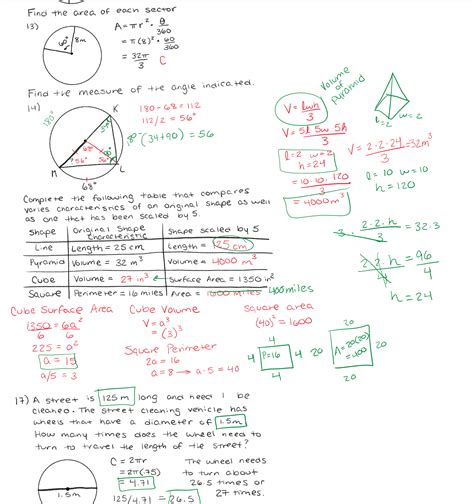 Find the area of each sector
13)
60°
8m
A = πr² · θ/360
= π(8)² · 60/360
= 32π/3
C
Find the measure of the angle indicated.
14)
180°
K
M
L
68°
56°
68°
180 - 68 = 112
112/2 = 56°
180 - (34+90) = 56
Volume of Pyramid
V = lwh/3
V = 5l 5w 5h/3
l = 2 w = 2
h = 24
= 10·10·120/3
= 4000m³
l=2
w=2
V = 2·2·24/3 = 32m³
l = 10 w = 10
h = 120
3 · 2·2·h/3 = 32·3
2·2·h/4 = 96/4
h = 24
Complete the following table that compares
varies characteristics of an original shape as well
as one that has been scaled by 5
Shape | Original Shape Characteristic | Shape scaled by 5
Line | Length = 25 cm | Length = 25 cm
Pyramid | Volume = 32 m³ | Volume = 4000 m³
Cube | Volume = 27 in³ | Surface Area = 1350 in²
Square | Perimeter = 16 miles | Area = 1600 miles 400 miles
Cube Surface Area
1350/6 = 6a²/6
225 = a²
a = 15
a/5 = 3
Cube Volume
V = a³
= (3)³
Square Perimeter
2a = 16
a = 8 → a·5 = 40
Square area
(40)² = 1600
4
4
P=16
4
4
20
20
A = 20(20)
= 400
20
20
17) A street is 125 m long and need to be
cleaned. The street cleaning vehicle has
wheels that have a diameter of 1.5m
How many times does the wheel need to
turn to travel the length of the street?
1.5m
C = 2πr
= 2π(.75)
= 4.71
125/4.71 = 26.5
The wheel needs
to turn about
26.5 times or
27 times.